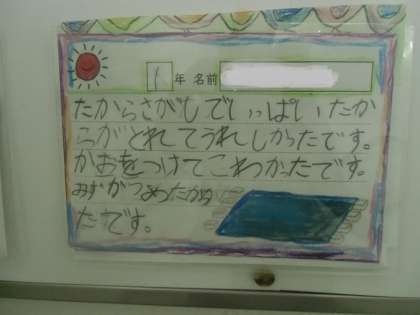 1年 名前
たからさがしでいっぱいたか
らがとれてうれしかったです。
かおをつけてこわかったです。
みずがつめたかっ
たです。